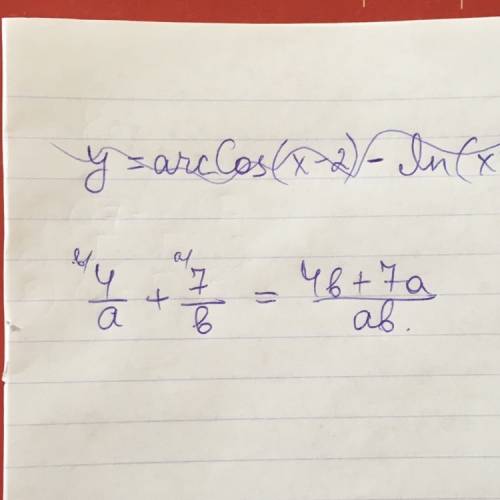 y = arccos(x-2) - ln(x
в/ 4/a + а/ 7/в = (4в + 7а)/ав.